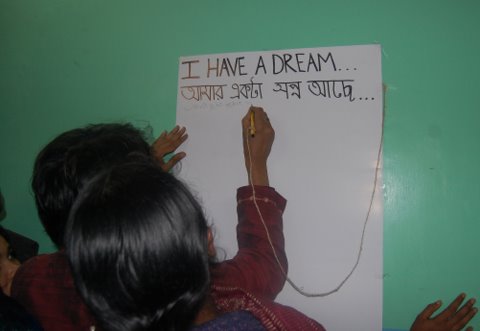 I HAVE A DREAM...
আমার একটা সপ্ন আছে...